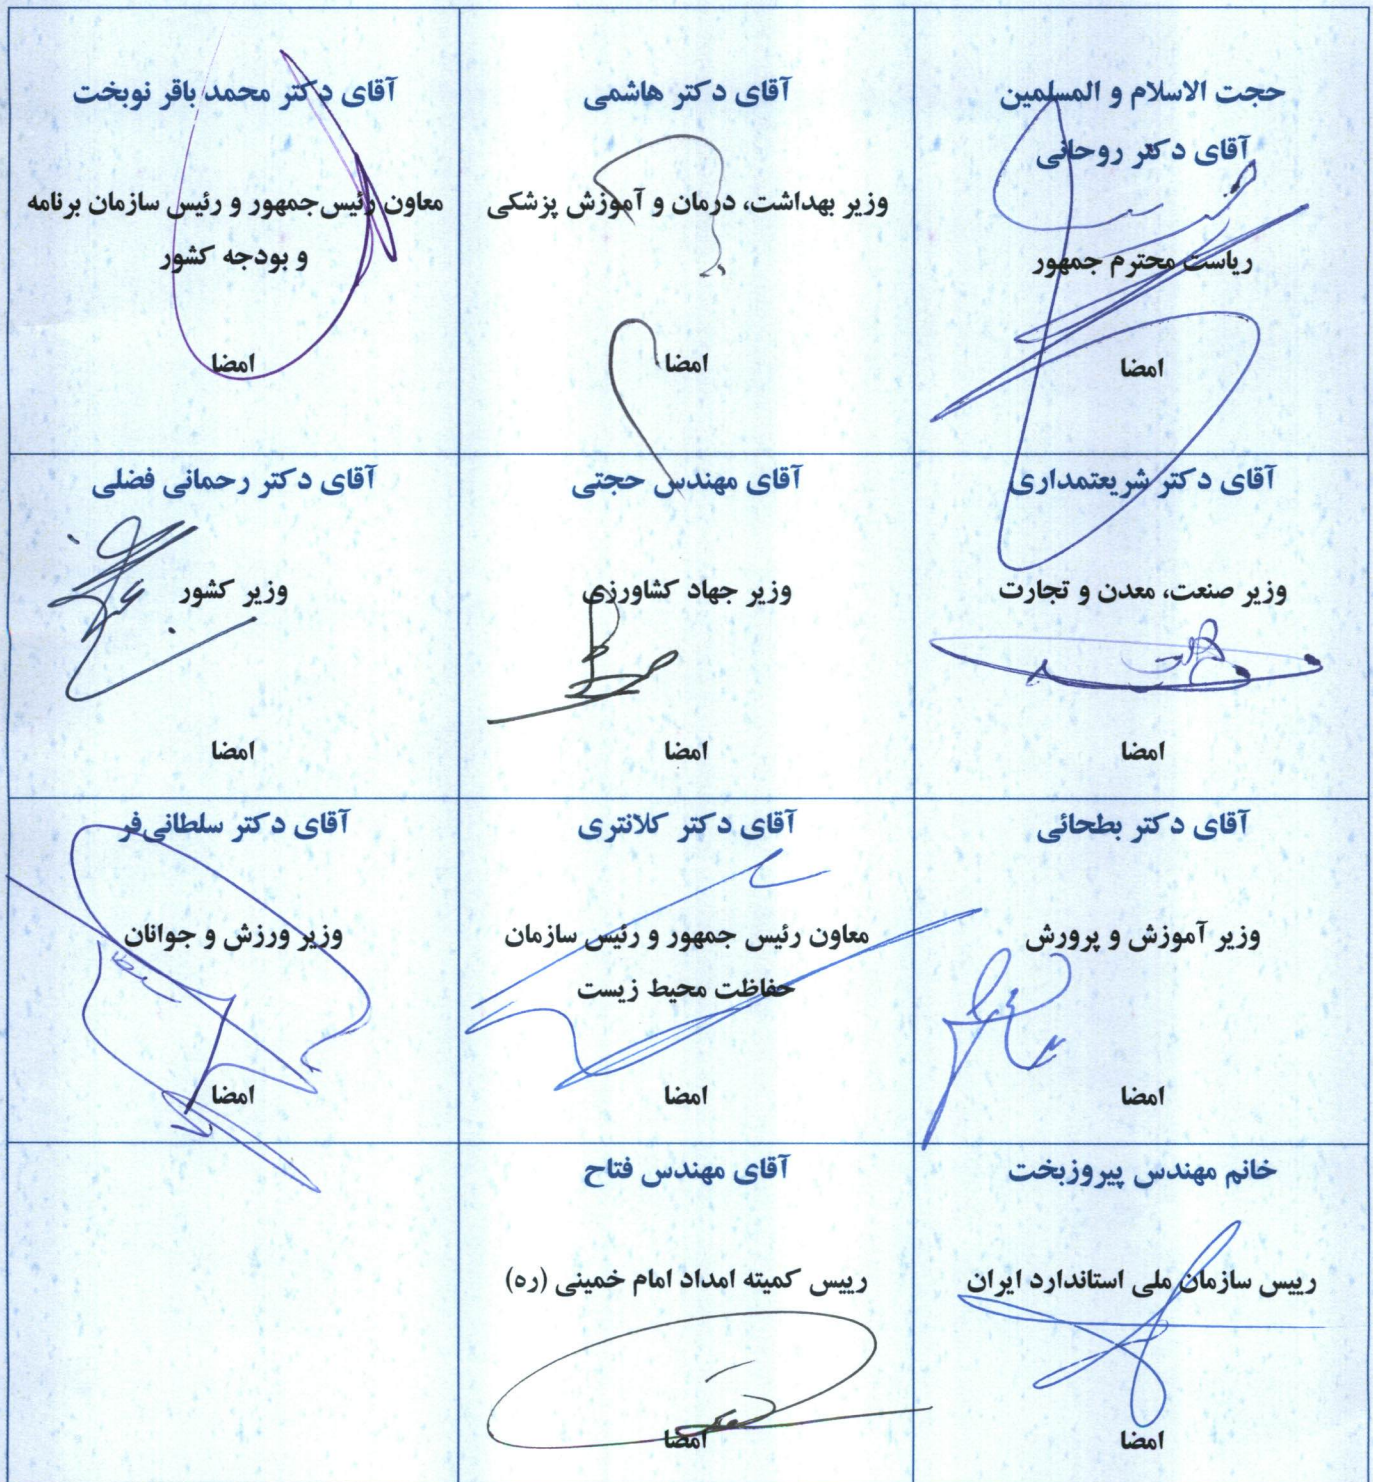 حجت الاسلام و المسلمین
آقای دکتر روحانی
ریاست محترم جمهور
امضا
آقای دکتر هاشمی
وزیر بهداشت، درمان و آموزش پزشکی
امضا
آقای دکتر محمد باقر نوبخت
معاون رئیس‌جمهور و رئیس سازمان برنامه
و بودجه کشور
امضا
آقای دکتر شریعتمداری
وزیر صنعت، معدن و تجارت
امضا
آقای مهندس حجتی
وزیر جهاد کشاورزی
امضا
آقای دکتر رحمانی فضلی
وزیر کشور
امضا
آقای دکتر بطحائی
وزیر آموزش و پرورش
امضا
آقای دکتر کلانتری
معاون رئیس جمهور و رئیس سازمان
حفاظت محیط زیست
امضا
آقای دکتر سلطانی‌فر
وزیر ورزش و جوانان
امضا
خانم مهندس پیروزبخت
رییس سازمان ملی استاندارد ایران
امضا
آقای مهندس فتاح
رییس کمیته امداد امام خمینی (ره)
امضا